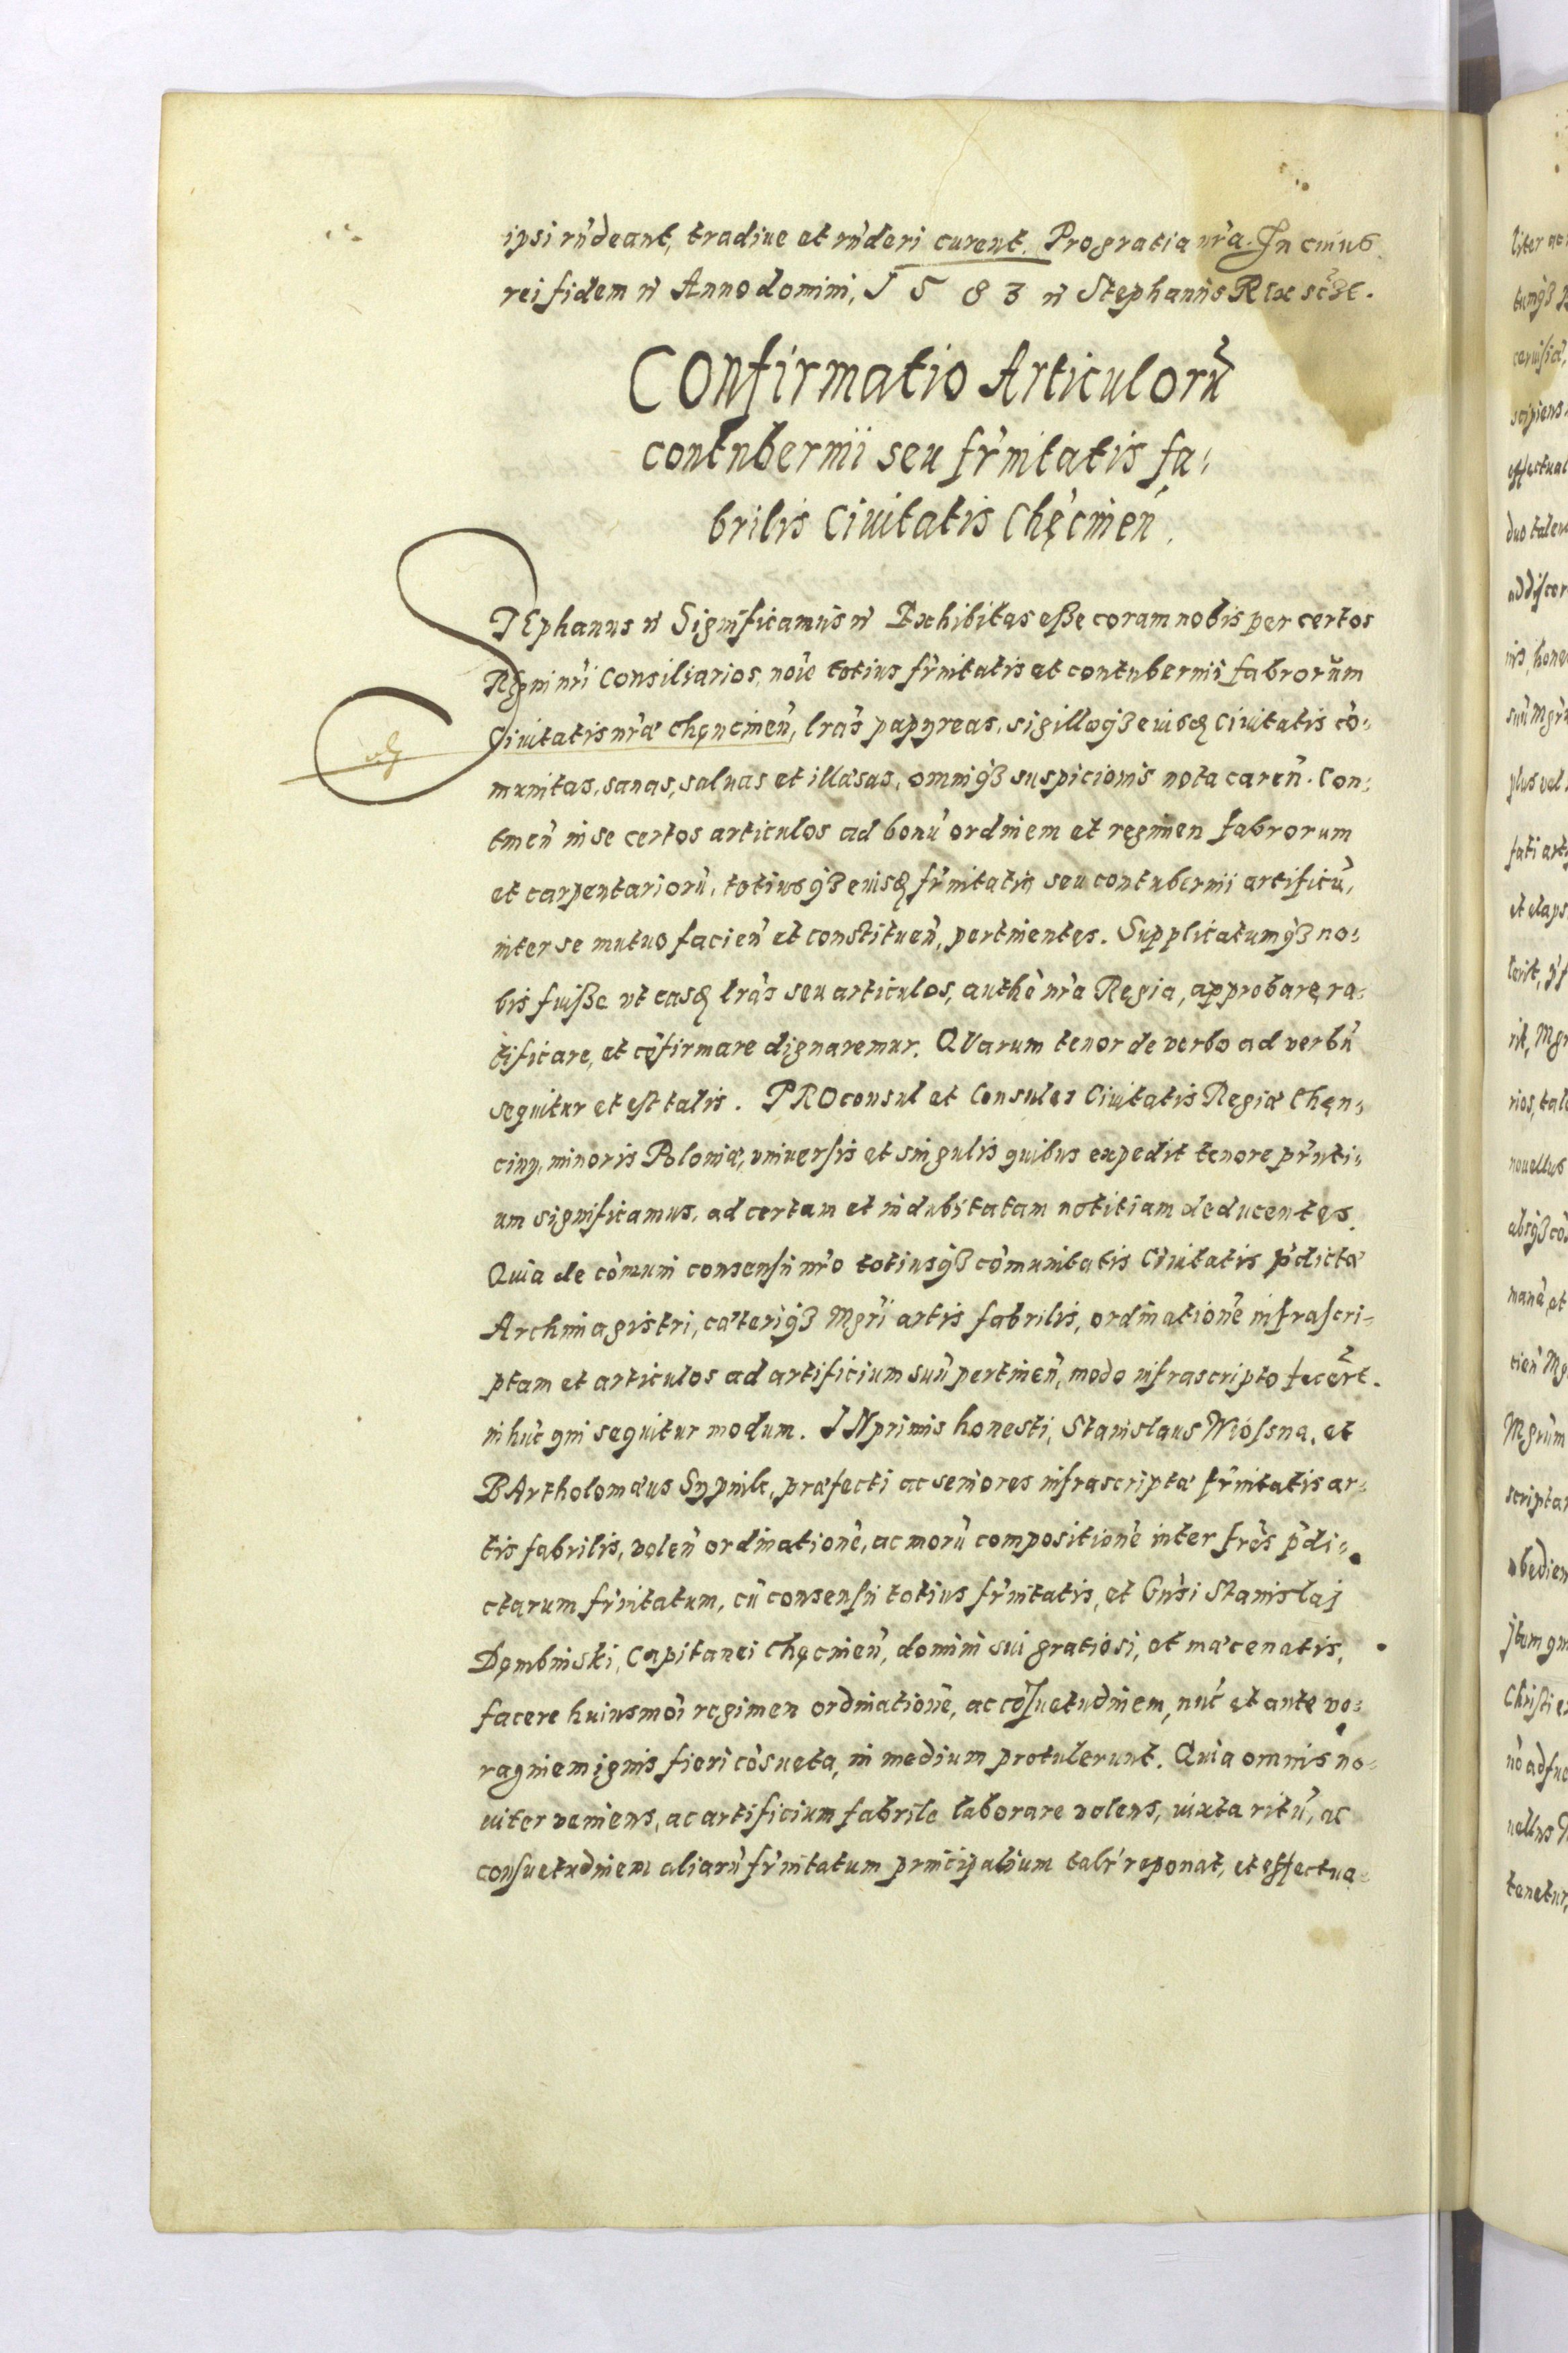 ipsi rñdeant, tradiue et rñderi curent. Pro gratia nr̃a. In cuius
rei fidem ñ Anno domini, 1583 ñ Stephanus Rex sc̃z c.
COnfirmatio Articulorũ
contubernii seu fr̃nitatis fa⸗
brilis Ciuitatis Chęcineñ.
STEphanus ñ Significamus ñ Exhibitas eße coram nobis per certos
Regni nr̃i Consiliarios, noĩe totius fr̃nitatis et contubernii fabrorum
Ciuitatis nr̃æ Chęncineñ, lr̃as papyreas, sigilloq̃ʒ eiusdẽ Ciuitatis cõ⸗
munitas, sanas, saluas et illæsas, omniq̃ʒ suspicionis nota careñ. Con⸗
tineñ in se certos articulos ad bonũ ordinem et regimen fabrorum
et carpentariorũ, totiusq̃ʒ eiusdẽ fr̃nitatis seu contubernii artificũ,
inter se mutuo facieñ et constitueñ, pertinentes. Supplicatumq̃ʒ no⸗
bis fuiße vt easdẽ lr̃as seu articulos, authẽ nr̃a Regia, approbare, ra⸗
tificare, et cõfirmare dignaremur. QVarum tenor de verbo ad verbũ
sequitur et est talis. PROconsul et Consules Ciuitatis Regiæ Chęn⸗
ciny, minoris Poloniæ, vniuersis et singulis quibus expedit tenore pr̃nti⸗
um significamus, ad certam et indubitatam notitiam deducentes.
Quia de cõmuni consensu nr̃o totiusq̃ʒ cõmunitatis Ciuitatis p̃dictæ
Archimagistri, cæteriq̃ʒ Mgr̃i artis fabrilis, ordinationẽ infrascri⸗
ptam et articulos ad artificium suũ pertineñ, modo infrascripto fecer̃t.
in hũc qui sequitur modum. INprimis honesti, Stanislaus Wiosna, et
BArtholomæus Sypnik, præfecti ac seniores infrascriptæ fr̃nitatis ar⸗
tis fabrilis, voleñ ordinationẽ, ac morũ compositionẽ inter fr̃es p̃di⸗
ctarum fr̃nitatum, cũ consensu totius fr̃nitatis, et Gñsi Stanislaj
Dęmbinski, Capitanei Chęcineñ, domini sui gratiosi, et mæcenatis,
facere huiusmõi regimen ordinationẽ, ac cõsuetudinem, nũc et ante vo⸗
raginem ignis fieri cõsueta, in medium protulerunt. Quia omnis no⸗
uiter veniens, ac artificium fabrile laborare volens, iuxta ritũ, ac
consuetudinem aliarũ fr̃nitatum principalium talr̃ reponat, et effectua⸗